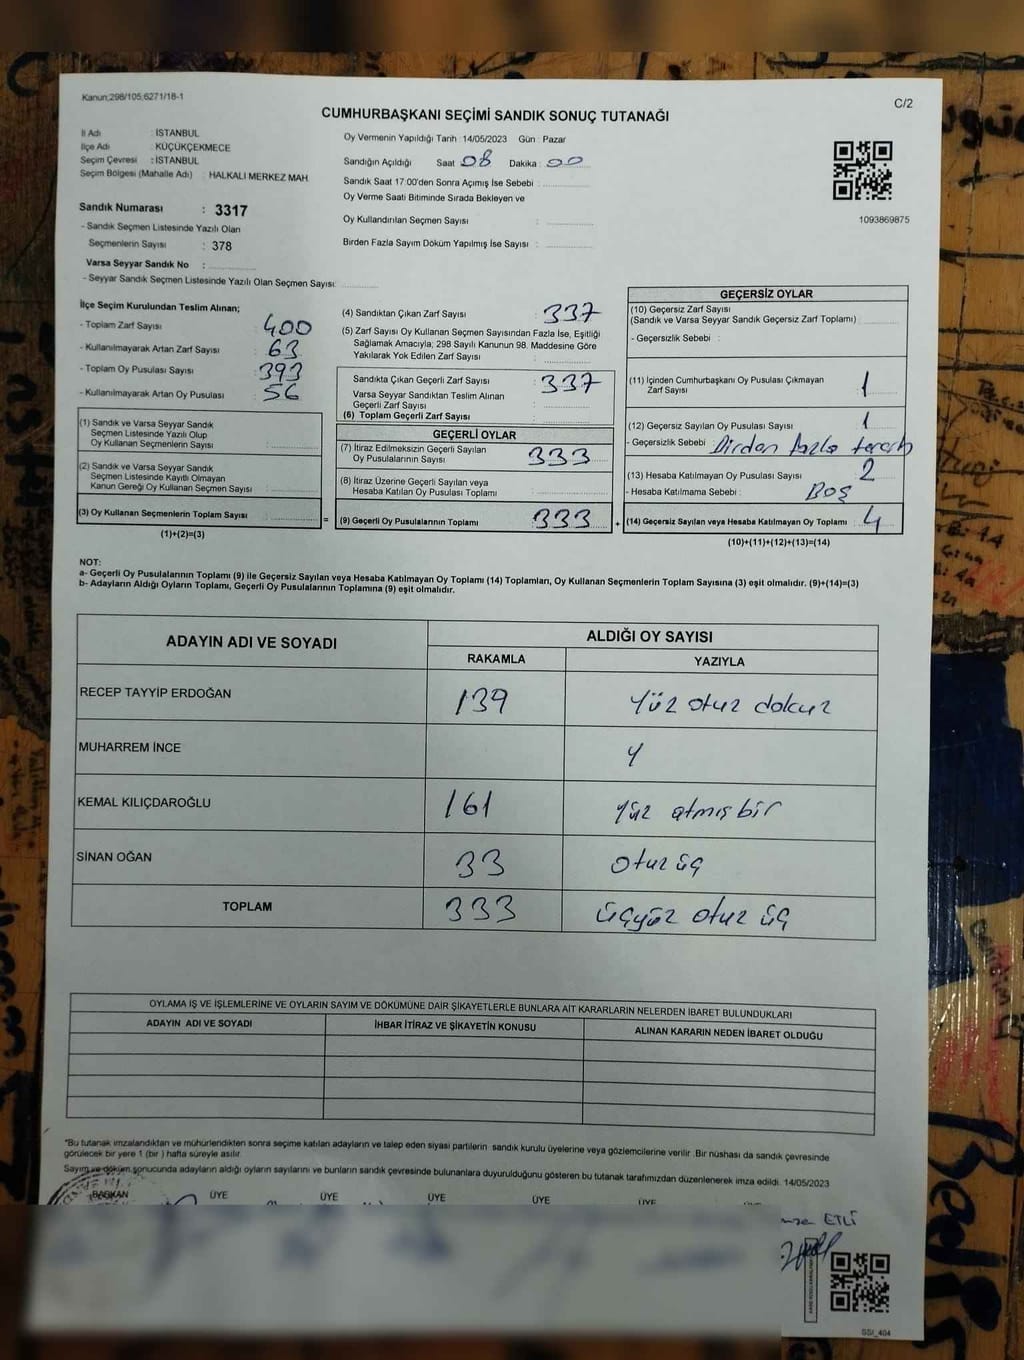 Kanun;298/105,6271/18-1
C/2
CUMHURBAŞKANI SEÇİMİ SANDIK SONUÇ TUTANAĞI
İl Adı : İSTANBUL
İlçe Adı : KÜÇÜKÇEKMECE
Seçim Çevresi : İSTANBUL
Seçim Bölgesi (Mahalle Adı) : HALKALI MERKEZ MAH.
Sandık Numarası : 3317
- Sandık Seçmen Listesinde Yazılı Olan
Seçmenlerin Sayısı : 378
Varsa Seyyar Sandık No :
- Seyyar Sandık Seçmen Listesinde Yazılı Olan Seçmen Sayısı:
Oy Vermenin Yapıldığı Tarih :14/05/2023 Gün : Pazar
Sandığın Açıldığı Saat 08 Dakika : 00
Sandık Saat 17.00'den Sonra Açımış İse Sebebi :
Oy Verme Saati Bitiminde Sırada Bekleyen ve
Oy Kullandırılan Seçmen Sayısı :
Birden Fazla Sayım Döküm Yapılmış İse Sayısı :
1093869875
İlçe Seçim Kurulundan Teslim Alınan;
- Toplam Zarf Sayısı : 400
- Kullanılmayarak Artan Zarf Sayısı : 63
- Toplam Oy Pusulası Sayısı : 393
- Kullanılmayarak Artan Oy Pusulası : 56
(1) Sandık ve Varsa Seyyar Sandık
Seçmen Listesinde Yazılı Olup
Oy Kullanan Seçmenlerin Sayısı :
(2) Sandık ve Varsa Seyyar Sandık
Seçmen Listesinde Kayıtlı Olmayan
Kanun Gereği Oy Kullanan Seçmen Sayısı :
(3) Oy Kullanan Seçmenlerin Toplam Sayısı :
(1)+(2)=(3)
(4) Sandıktan Çıkan Zarf Sayısı : 337
(5) Zarf Sayısı Oy Kullanan Seçmen Sayısından Fazla İse, Eşitliği
Sağlamak Amacıyla; 298 Sayılı Kanunun 98. Maddesine Göre
Yakılarak Yok Edilen Zarf Sayısı :
Sandıkta Çıkan Geçerli Zarf Sayısı : 337
Varsa Seyyar Sandıktan Teslim Alınan
Geçerli Zarf Sayısı :
(6) Toplam Geçerli Zarf Sayısı :
GEÇERLİ OYLAR
(7) İtiraz Edilmeksizin Geçerli Sayılan
Oy Pusulalarının Sayısı : 333
(8) İtiraz Üzerine Geçerli Sayılan veya
Hesaba Katılan Oy Pusulası Toplamı :
= (9) Geçerli Oy Pusulalarının Toplamı : 333 +
GEÇERSİZ OYLAR
(10) Geçersiz Zarf Sayısı
(Sandık ve Varsa Seyyar Sandık Geçersiz Zarf Toplamı)
- Geçersizlik Sebebi :
(11) İçinden Cumhurbaşkanı Oy Pusulası Çıkmayan
Zarf Sayısı : 1
(12) Geçersiz Sayılan Oy Pusulası Sayısı : 1
- Geçersizlik Sebebi : Birden fazla tercih
(13) Hesaba Katılmayan Oy Pusulası Sayısı : 2
- Hesaba Katılmama Sebebi : Boş
(14) Geçersiz Sayılan veya Hesaba Katılmayan Oy Toplamı : 4
(10)+(11)+(12)+(13)=(14)
NOT:
a- Geçerli Oy Pusulalarının Toplamı (9) ile Geçersiz Sayılan veya Hesaba Katılmayan Oy Toplamı (14) Toplamları, Oy Kullanan Seçmenlerin Toplam Sayısına (3) eşit olmalıdır. (9)+(14)=(3)
b- Adayların Aldığı Oyların Toplamı, Geçerli Oy Pusulalarının Toplamına (9) eşit olmalıdır.
ADAYIN ADI VE SOYADI
ALDIĞI OY SAYISI
RAKAMLA YAZIYLA
RECEP TAYYİP ERDOĞAN 139 Yüz otuz dokuz
MUHARREM İNCE
KEMAL KILIÇDAROĞLU 161 Yüz atmış bir
SİNAN OĞAN 33 Otuz üç
TOPLAM 333 üçyüz otuz üç
OYLAMA İŞ VE İŞLEMLERİNE VE OYLARIN SAYIM VE DÖKÜMÜNE DAİR ŞİKAYETLERLE BUNLARA AİT KARARLARIN NELERDEN İBARET BULUNDUKLARI
ADAYIN ADI VE SOYADI İHBAR İTİRAZ VE ŞİKAYETİN KONUSU ALINAN KARARIN NEDEN İBARET OLDUĞU
*Bu tutanak imzalandıktan ve mühürlendikten sonra seçime katılan adayların ve talep eden siyasi partilerin sandık kurulu üyelerine veya gözlemcilerine verilir .Bir nüshası da sandık çevresinde
görülecek bir yere 1 (bir ) hafta süreyle asılır.
Sayım ve döküm sonucunda adayların aldığı oyların sayılarını ve bunların sandık çevresinde bulunanlara duyurulduğunu gösteren bu tutanak tarafımızdan düzenlenerek imza edildi. 14/05/2023
BAŞKAN ÜYE ÜYE ÜYE ÜYE ÜYE
ETLİ